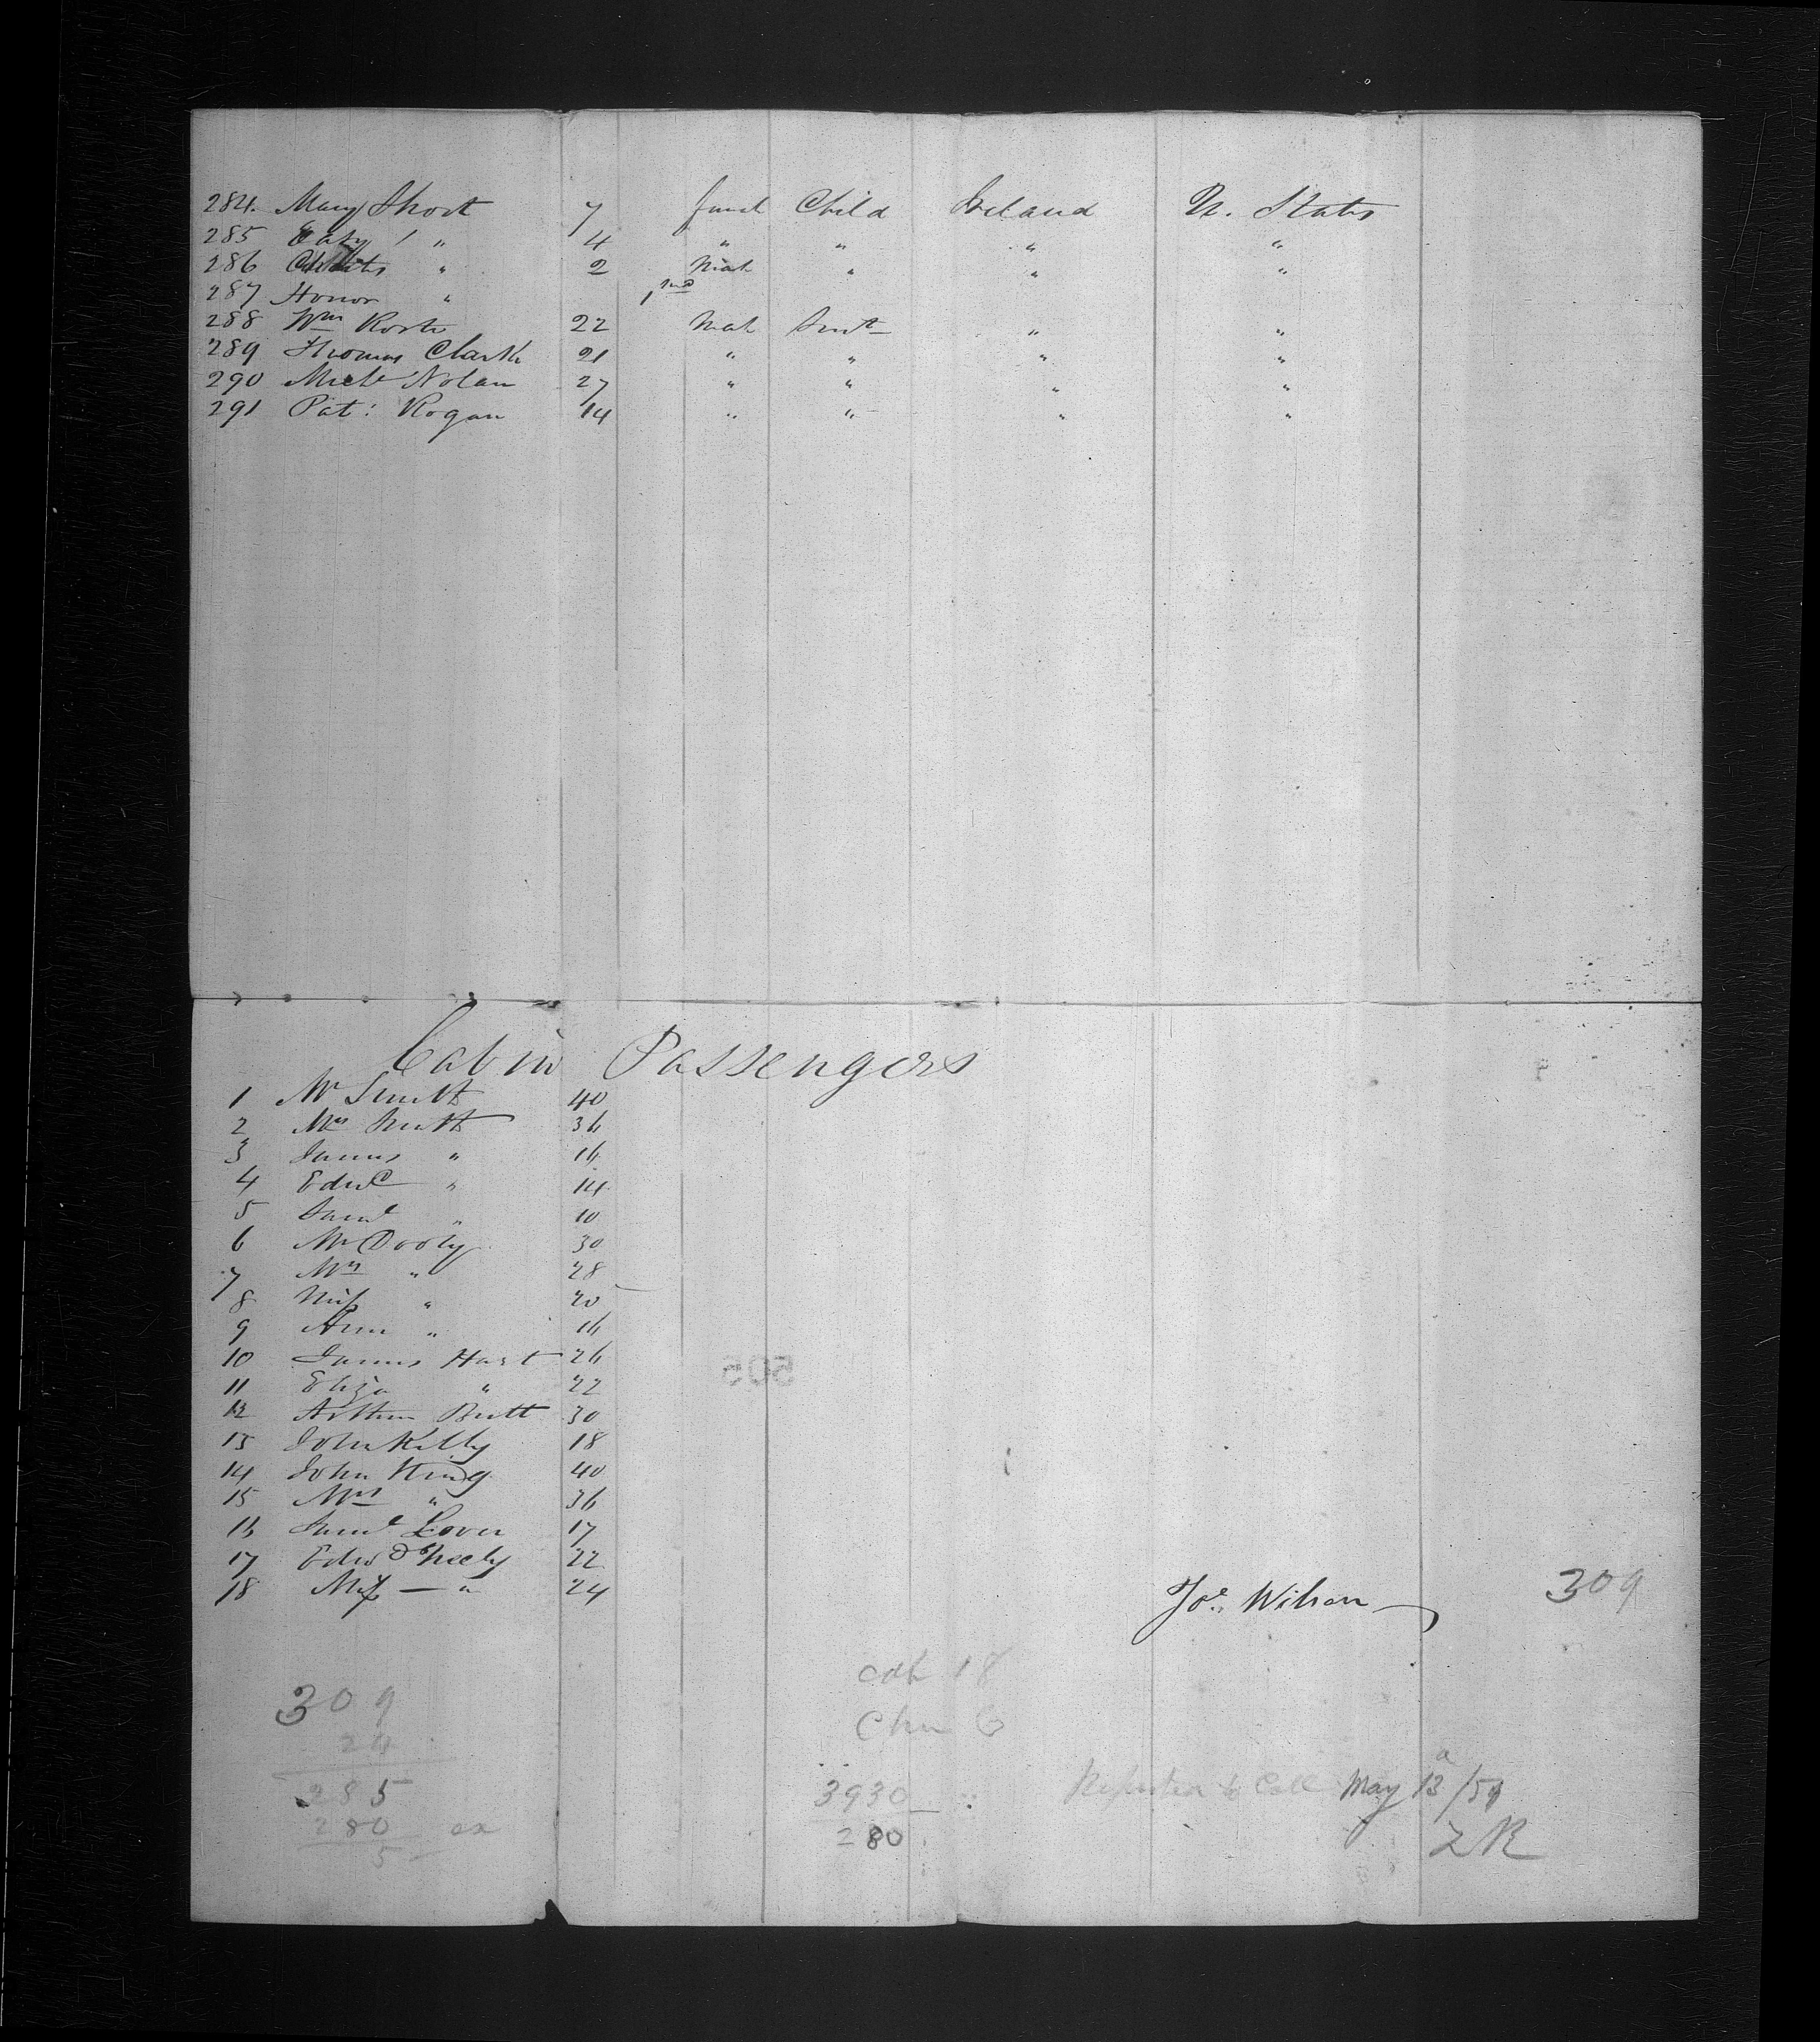 284. Mary Short 7 femal Child Ireland U. States
285 Caty " 4 " " " "
286 2 Mal " " "
287 Honor "
288 Wm 22 Mal " "
289 Thomas Clark 21 " " " "
290 Michl Nolan 27 " " " "
291 Pat: Rogan 14 " " " "
Cabin Passengers
1 Mr Smith 40
2 Mrs Smith 36
3 James " 16
4 Edwd " 14
5 Saml " 10
6 Mr Dooly 30
7 Mrs " 28
8 Miss " 20
9 Ann " 16
10 James Hart 26
11 Eliza " 22
12 Arthur Butt 30
13 John Kelly 18
14 John King 40
15 Mrs " 36
16 Saml Lover 17
17 Edwd Neely 22
18 — " 24
Jos. Wilson
309
18
309
24
285
280
5
3930
280
May 13